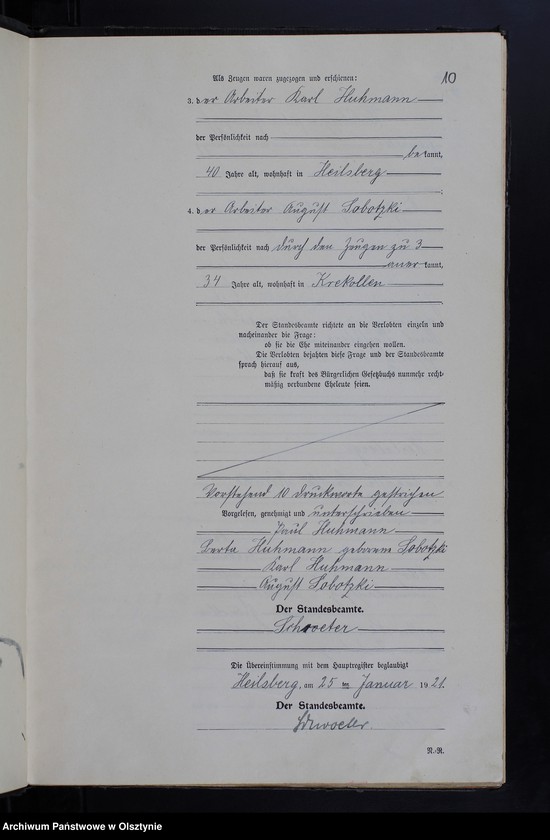 10
Als Zeugen waren zugezogen und erschienen:
3. der Arbeiter Karl Huhmann
der Persönlichkeit nach
bekannt,
40 Jahre alt, wohnhaft in Heilsberg
;
4. der Arbeiter August Sobotzki
der Persönlichkeit nach durch den Zeugen zu 3
anerkannt,
34 Jahre alt, wohnhaft in Krekollen
Der Standesbeamte richtete an die Verlobten einzeln und
nacheinander die Frage:
ob sie die Ehe miteinander eingehen wollen.
Die Verlobten bejahten diese Frage und der Standesbeamte
sprach hierauf aus,
daß sie kraft des Bürgerlichen Gesetzbuchs nunmehr recht-
mäßig verbundene Eheleute seien.
Vorstehend 10 Druckworte gestrichen
Vorgelesen, genehmigt und unterschrieben
Paul Huhmann
Berta Huhmann geborene Sobotzki
Karl Huhmann
August Sobotzki
Der Standesbeamte.
Schroeter
Die Übereinstimmung mit dem Hauptregister beglaubigt
Heilsberg, am 25 ten Januar 1921.
Der Standesbeamte.
Schroeter.
N.-R.
Archiwum Państwowe w Olsztynie